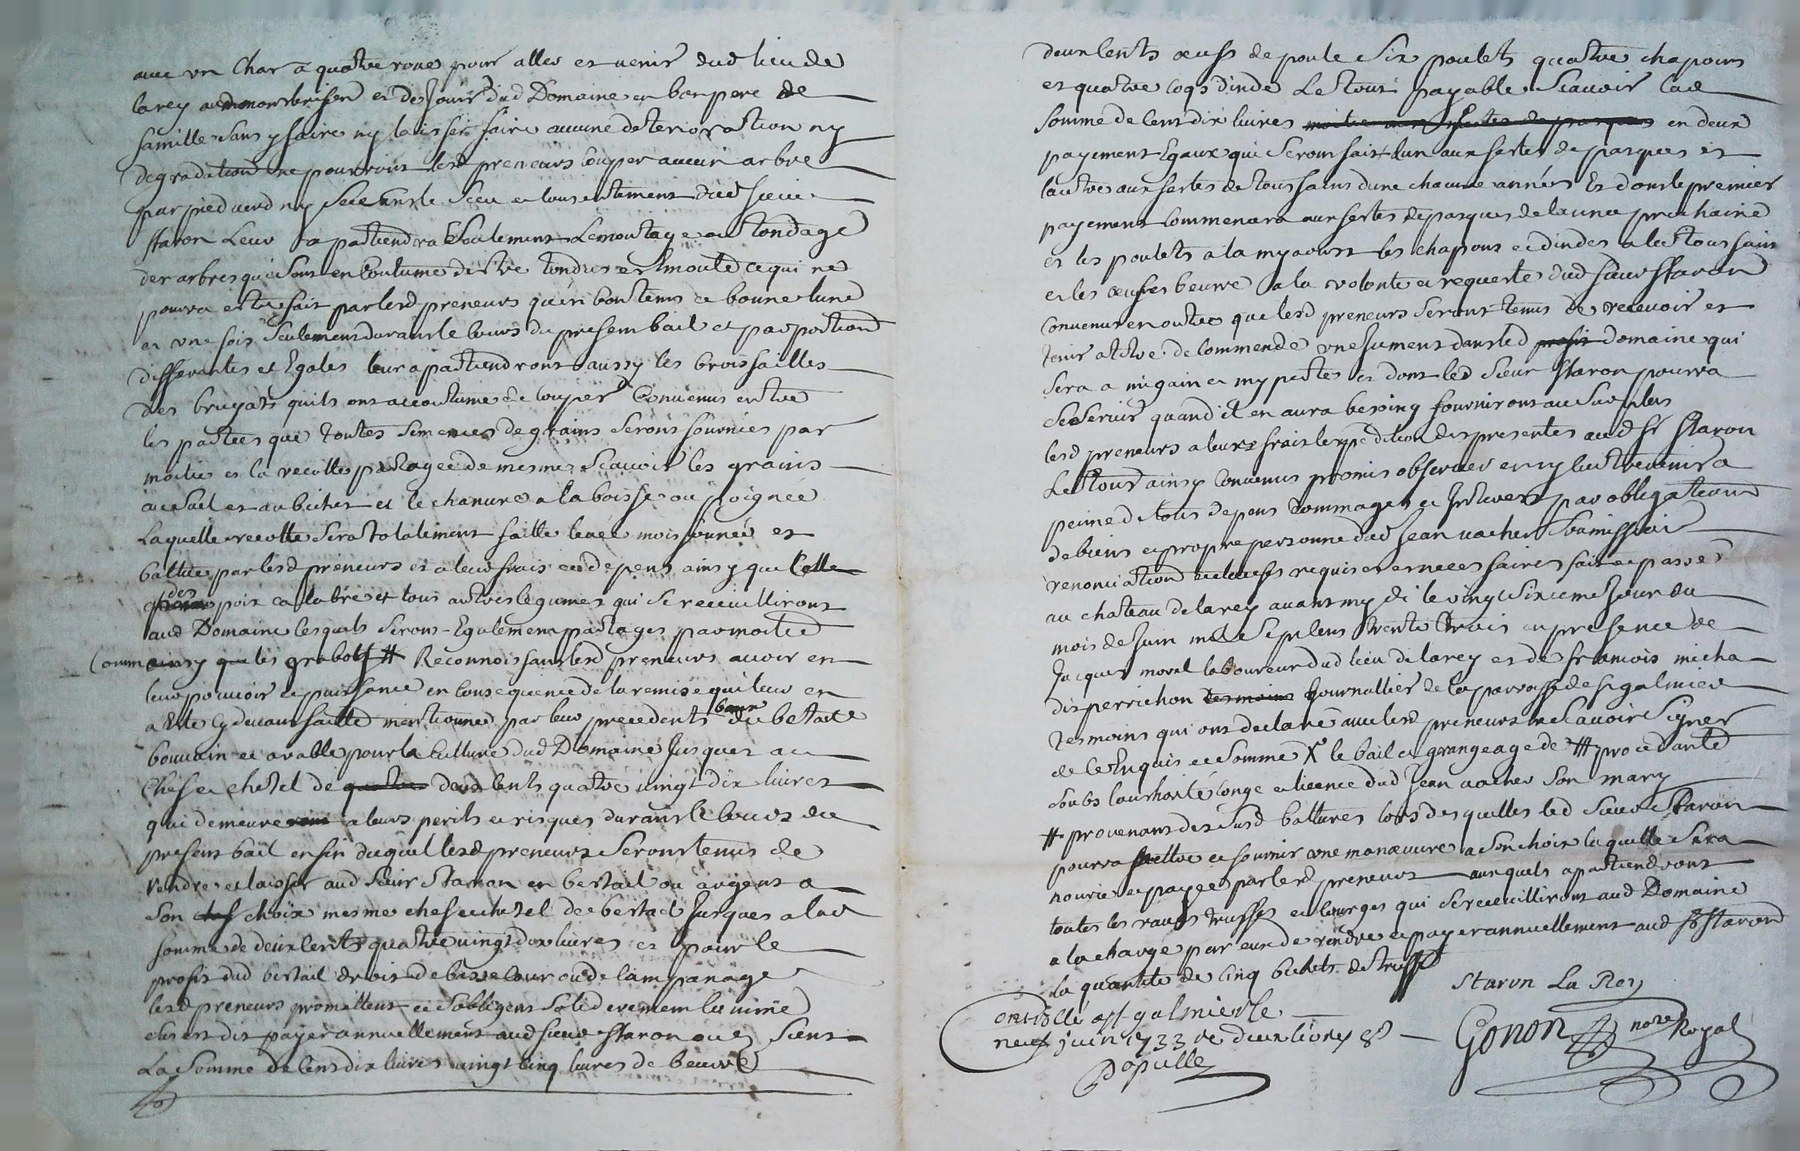 avec un Char a quatre roues pour aller et venir dud lieu de
larey a et de jouir dud Domaine en bon pere de
famille sans y faire ny laisser faire aucune deterioration ny
degradation ne pourront lesd preneurs couper aucun arbre
par pied verd ny sec sans le sceu et consentement dud sieur
Staron Leur apartiendra seulement Lemoutage et tondage
des arbres qui sont en Coutume destre tondus et emouté ce qui ne
pourra estre fait par lesd preneurs qu'en bon tems de bonne lune
et une fois seulement durant le cours du present bail et par portion
differantes et Egales leur apartiendront aussy les broissailles
des bruyats quils ont accoutume de couper Convenus entre
les parties que toutes semences de grains seront fournies par
moitié et la recolte partagée de mesmes scavoir les grains
au sait et au bichet et le chanvre a la boisse ou poignée
Laquelle recolte sera totalement faitte levee moissonnée et
battue par lesd preneurs et a leur frais et depens ainsy que Celle
des pois et tous autres legumes qui se recuilliront
aud Domaine lesquels seront Egalement partages par moitié
Comm ainsy que les # Reconnoissant lesd preneurs avoir en
leur pouvoir et puissance en consequence de la remise qui leur en
a été cy devant faitte mentionnée par leur precedents baux du bestail
bouvain et arable pour la Culture dud Domaine Jusques au
Chef et chetel de quatre deux cents quatre vingt dix livres
qui demeure a leurs perils et risques durant le cours du
present bail en fin duquel lesd preneurs seront tenus de
rendre et laisser aud sieur Staron en bestail ou argent a
son choix mesme chef et chetel de bestail Jusques a lad
somme de deux cents quatre vingt dix livres et pour le
profit dud bestail droit de basse cour et de
lesd preneurs promettent et sobligent solidairement
payer annuellement aud sieur Staron ou es siens
La Somme de Cent dix livres vingt cinq livres de beurre
deux cents oeufs de poule six poulets quatre chapons
et quatre coqs dinde Le tout payable Scavoir lad
somme de Cent dix livres moitie aux festes de pasques en deux
payement Egaux qui seront fait lun aux festes de pasques et
lautre aux festes de toussains dune chacune année Et dont le premier
payement Commencera aux festes de pasques de lannée prochaine
et les poulets a la my aoust les chapons et dindes a la toussains
et les oeufs et beurre a la volonté et requeste dud sieur Staron
Convenu en outre que lesd preneurs seront tenus de recevoir et
tenir a titre de Commende une Jument dans led profit domaine qui
sera a migain et my pertes et dont led sieur Staron pourra
se servir quand il en aura besoing fourniront au surplus
lesd preneurs a leurs frais lexpedition des presentes aud sr Staron
Le tout ainsy Convenus promis observer et ny contrevenir a
peine de tous depens dommages et Jnterest par obligation
de biens et propre personne dud Jean vacher soumission
renonciation et clauses requises et necessaires fait et passé
au chateau de larey avant mydi le vingt sixieme Jour du
mois de Juin mille sept cens trente trois en presence de
Jacques morel laboureur dud lieu de larey et de francois micha
dit perrichon tesmoins Journallier de la parroisse de st galmier
tesmoins qui ont declaré avec lesd preneurs ne scavoir signer
de ce Enquis et sommé X le bail et grangeage de # procedante
soubs lauthorité congé et licence dud Jean vacher son mary
# provenans des susd battures lors desquelles led sieur Staron
pourra mettre et fournir une manoeuvre a son choix laquelle sera
nourrie et payée par lesd preneurs auxquels apartiendront
toutes les raves truffes et courges qui se recuilliront aud Domaine
a la charge par eux de rendre et payer annuellement aud sr Staron
la quantité de Cinq bichets de truffe
Staron La Rey
Controllé a st galmier le
neuf juin 1733 re deux livres 8s
Gonon nore Royal
Populle